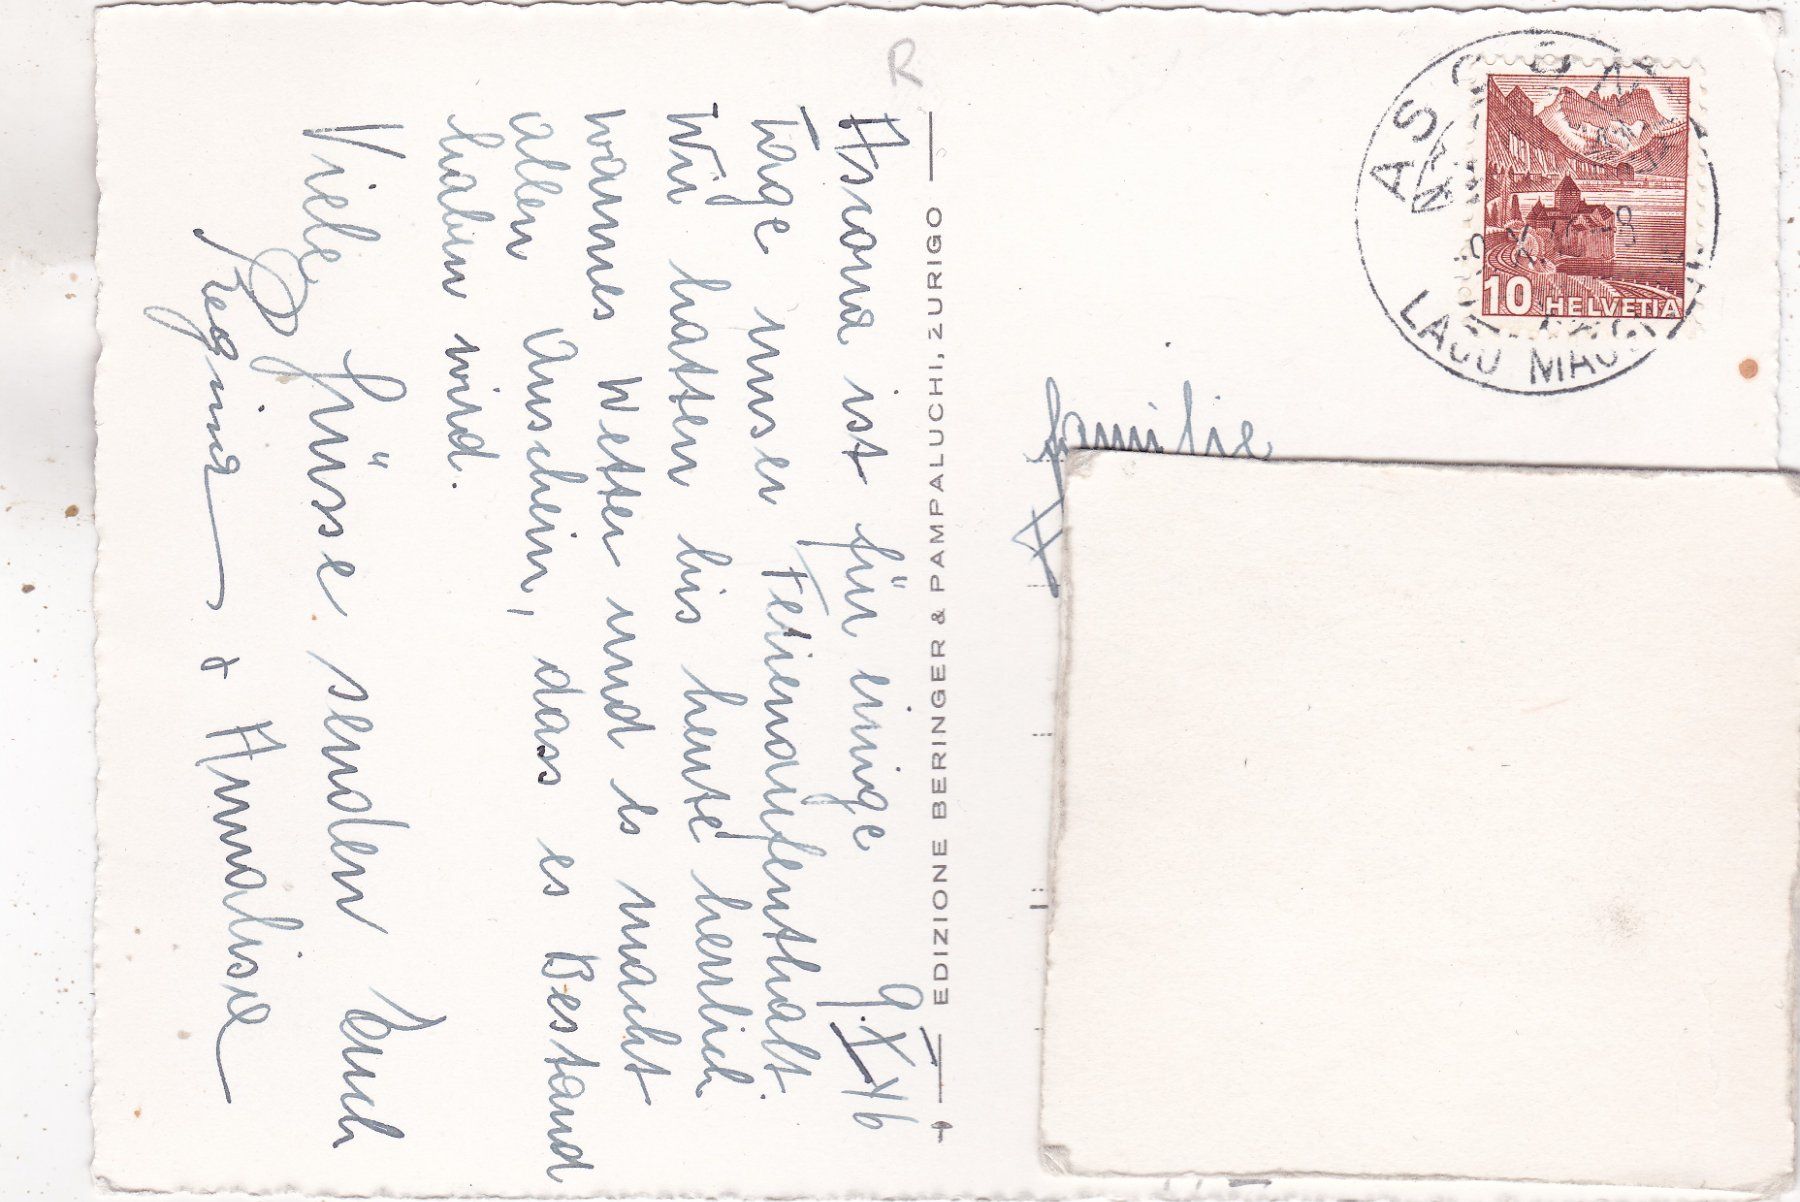 9.X.46
Ascona ist für einige
Tage unser Ferienaufenthalt.
Wir hatten bis heute herrlich
warmes Wetter und es macht
allen Anschein, dass es Bestand
haben wird.
Viele Grüsse senden Euch
Regina + Annalise
R
EDIZIONE BERINGER & PAMPALUCHI, ZURIGO
Familie
ASCONA
LAGO MAGG
10 HELVETIA